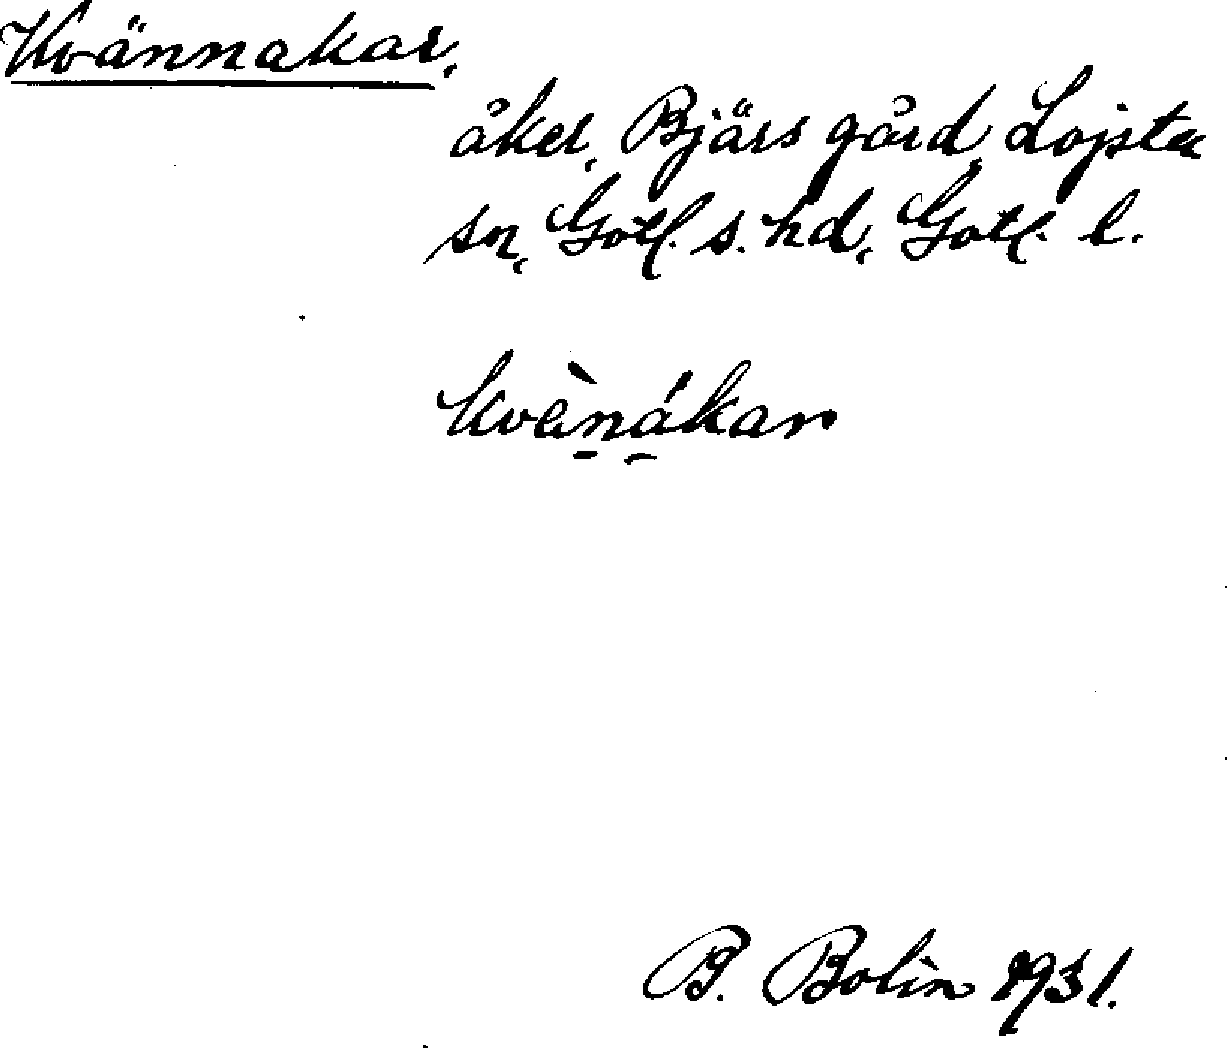 Kvännakar,
åker, Bjärs gård, Lojsta
sn, Gotl. s. hd, Gotl. l.
kvènákar
B. Bolin 1931.